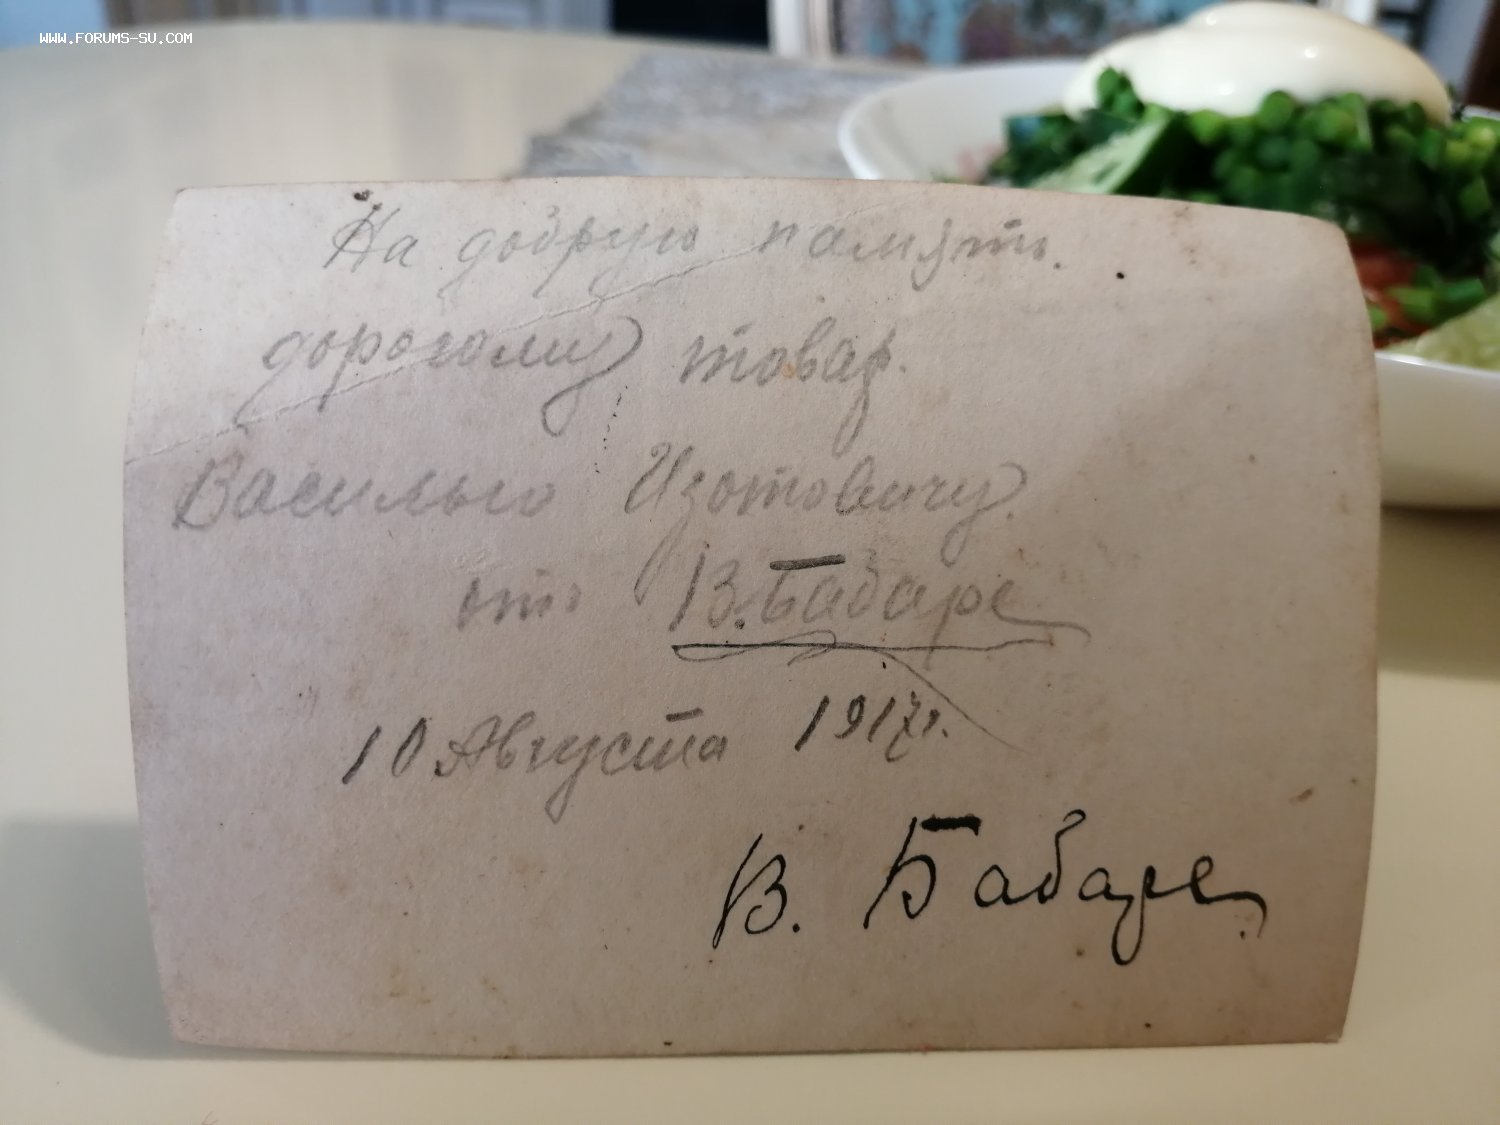 WWW.FORUMS-SU.COM
На добрую память.
дорогому товар.
Василью Изотовичу.
отъ В. Бабаре
10 Августа 1917 г.
В. Бабаре